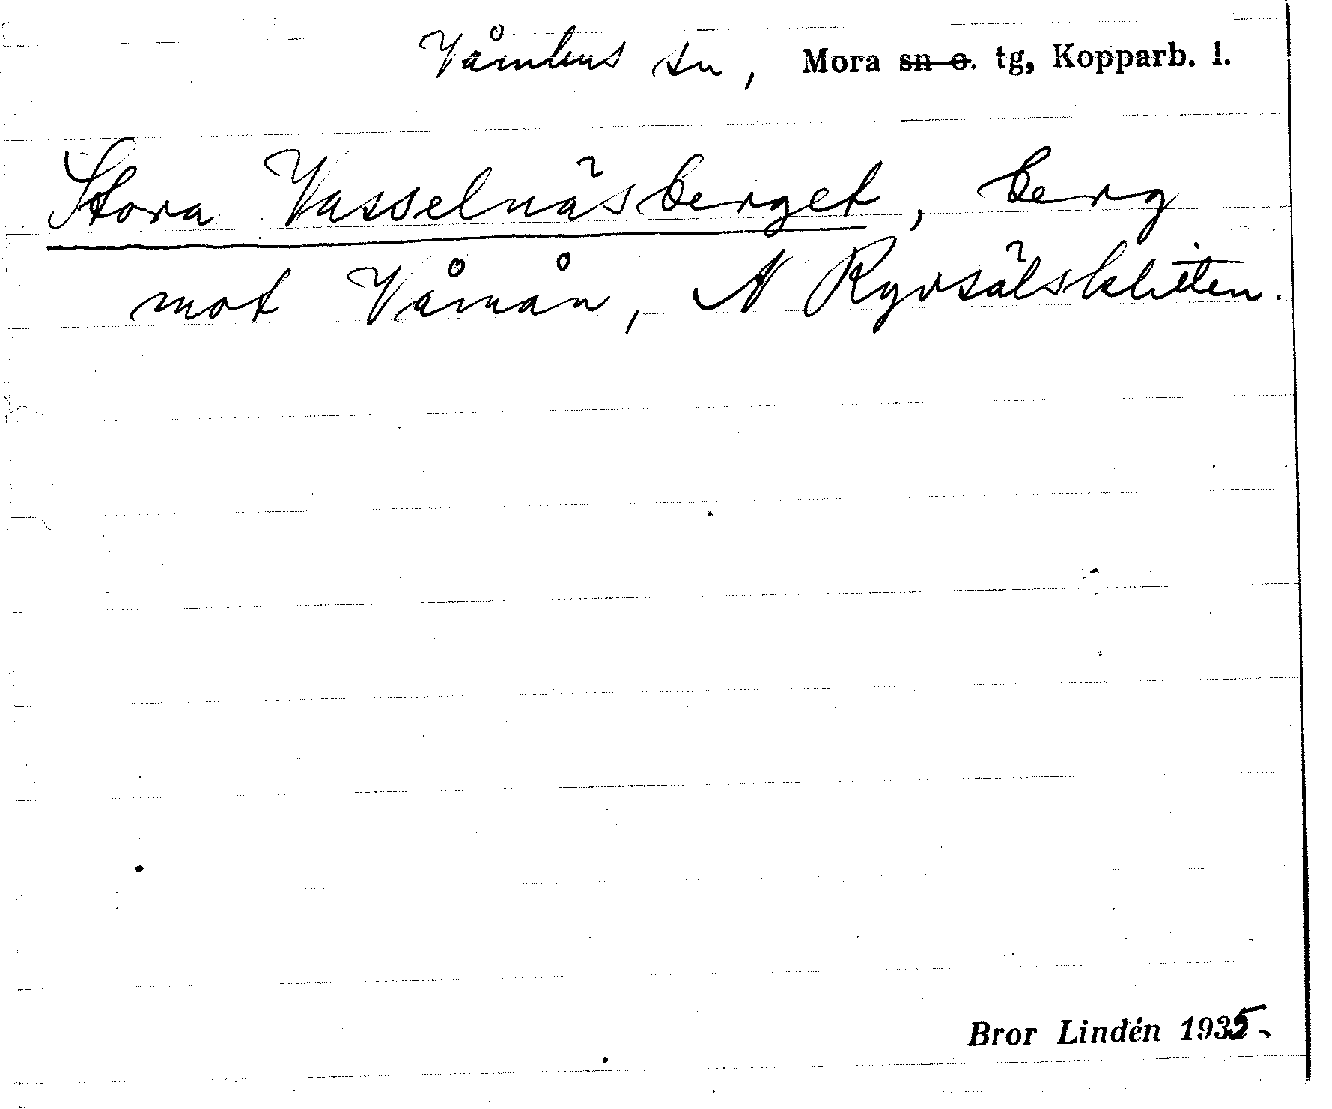 Våmhus sn, Mora sn o. tg, Kopparb. l.
Stora Vasselnäsberget, berg
mot Våmån, N Ryvsälsklitten.
Bror Lindén 1935.